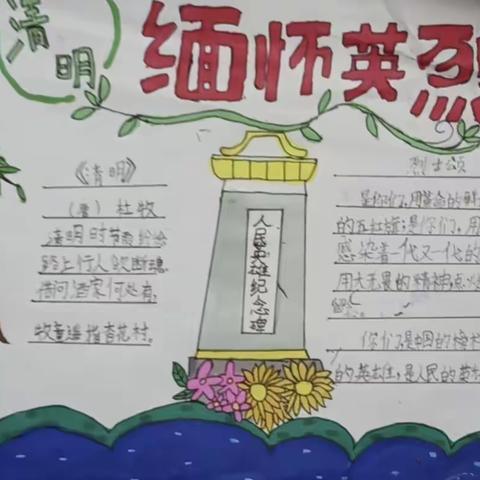 清明
缅怀英烈
《清明》
(唐) 杜牧
清明时节雨纷纷
路上行人欲断魂
借问酒家何处有,
牧童遥指杏花村。
人民英雄纪念碑
烈士颂
是你们,用革命的鲜
的五红旗;是你们,用
感染着一代又一代的
用大无畏的精神点火
你们是中国的脊梁
的英雄,是人民的英